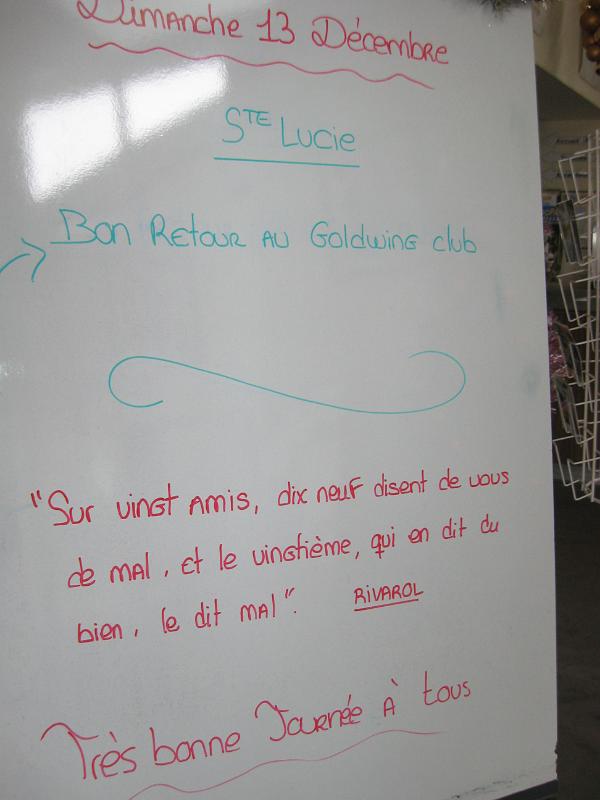 Dimanche 13 Décembre
STE Lucie
Bon Retour au Goldwing club
"Sur vingt amis, dix neuf disent de vous
de mal, et le vingtième, qui en dit du
bien, le dit mal".
RIVAROL
Très bonne Journée à tous